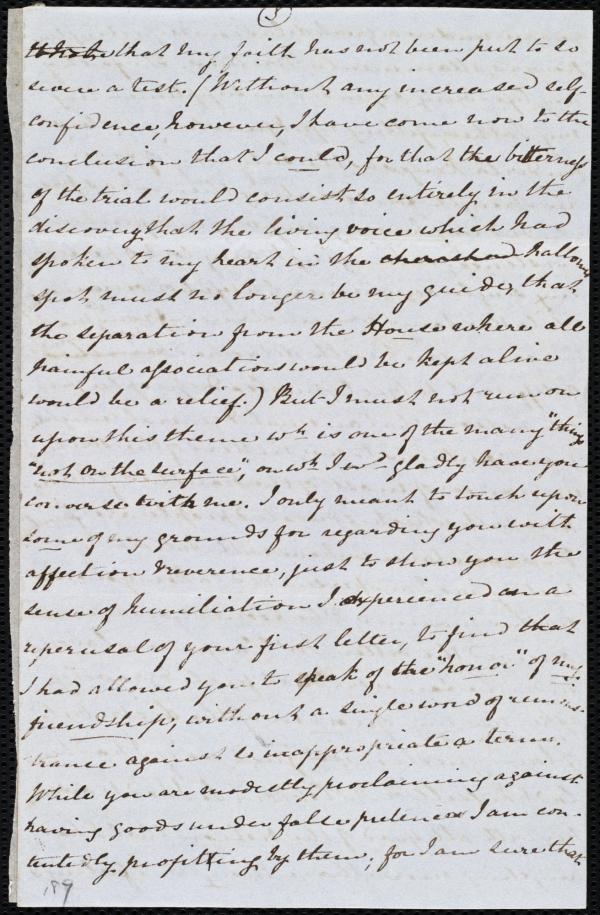 (5)
that my faith has not been put to so
severe a test. (Without any increased self-
confidence, however, I have come now to the
conclusion that I could, for that the bitterness
of the trial would consist so entirely in the
discovery that the living voice which had
spoken to my heart in the cherished hallowed
spot must no longer be my guide, that
the separation from the House where all
painful associations would be kept alive
would be a relief.) But I must not run on
upon this theme wh. is one of the many "things
"not on the surface", on wh. I wd. gladly have you
converse with me. I only meant to touch upon
some of my grounds for regarding you with
affection & reverence, just to show you the
sense of humiliation I experienced on a
reperusal of your first letter, to find that
I had allowed you to speak of the "honor" of my
friendship, without a single word of remons-
trance against so inappropriate a term.
While you are modestly proclaiming against
having goods under false pretences I am con-
tentedly profiting by them; for I am sure that
189